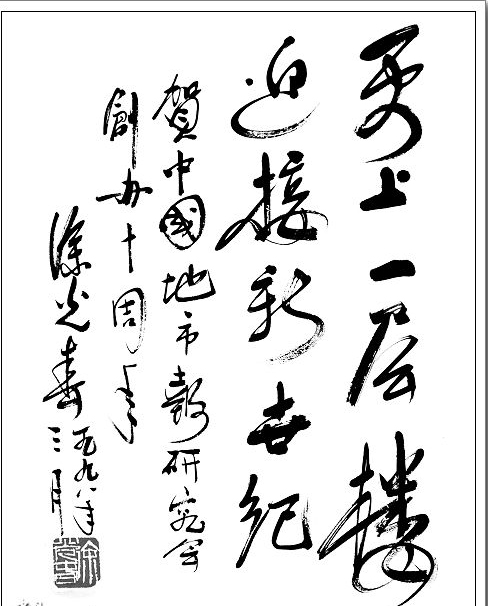 更上一层楼
迎接新世纪
賀中國地市報研究会
創办十周年
徐光春
一九九八年
三月